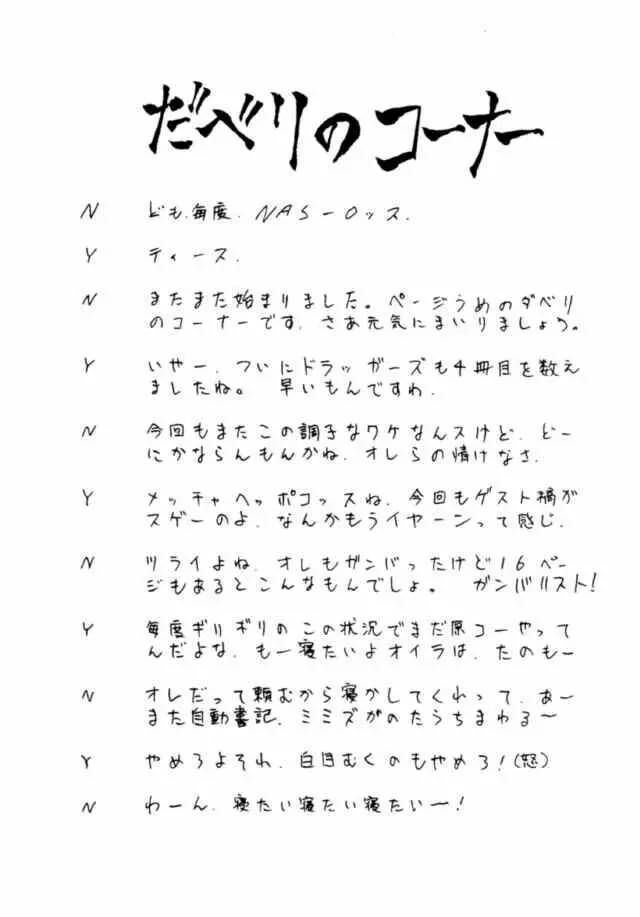 だべりのコーナー
N ども、毎度、NAS-0ッス.
Y ティース.
N またまた始まりました。ページうめのダベリ
のコーナーです、さあ元気にまいりましょう。
Y いやー、ついにドラッガーズも4冊目を数え
ましたね。 早いもんですわ.
N 今回もまたこの調子なワケなんスけど、どー
にかならんもんかね、オレらの情けなさ.
Y メッチャヘッポコッスね、今回もゲスト稿が
スゲーのよ、なんかもうイヤーンって感じ.
N ツライよね、オレもガンバったけど16ペー
ジもあるとこんなもんでしょ。 ガンバリスト!
Y 毎度ギリギリのこの状況でまだ原コーやって
んだよな、もー寝たいよオイラは、たのもー
N オレだって頼むから寝かしてくれって、あー
また自動書記、ミミズがのたうちまわる〜
Y やめろよそれ、白目むくのもやめろ!(怒)
N わーん、寝たい寝たい寝たい〜!